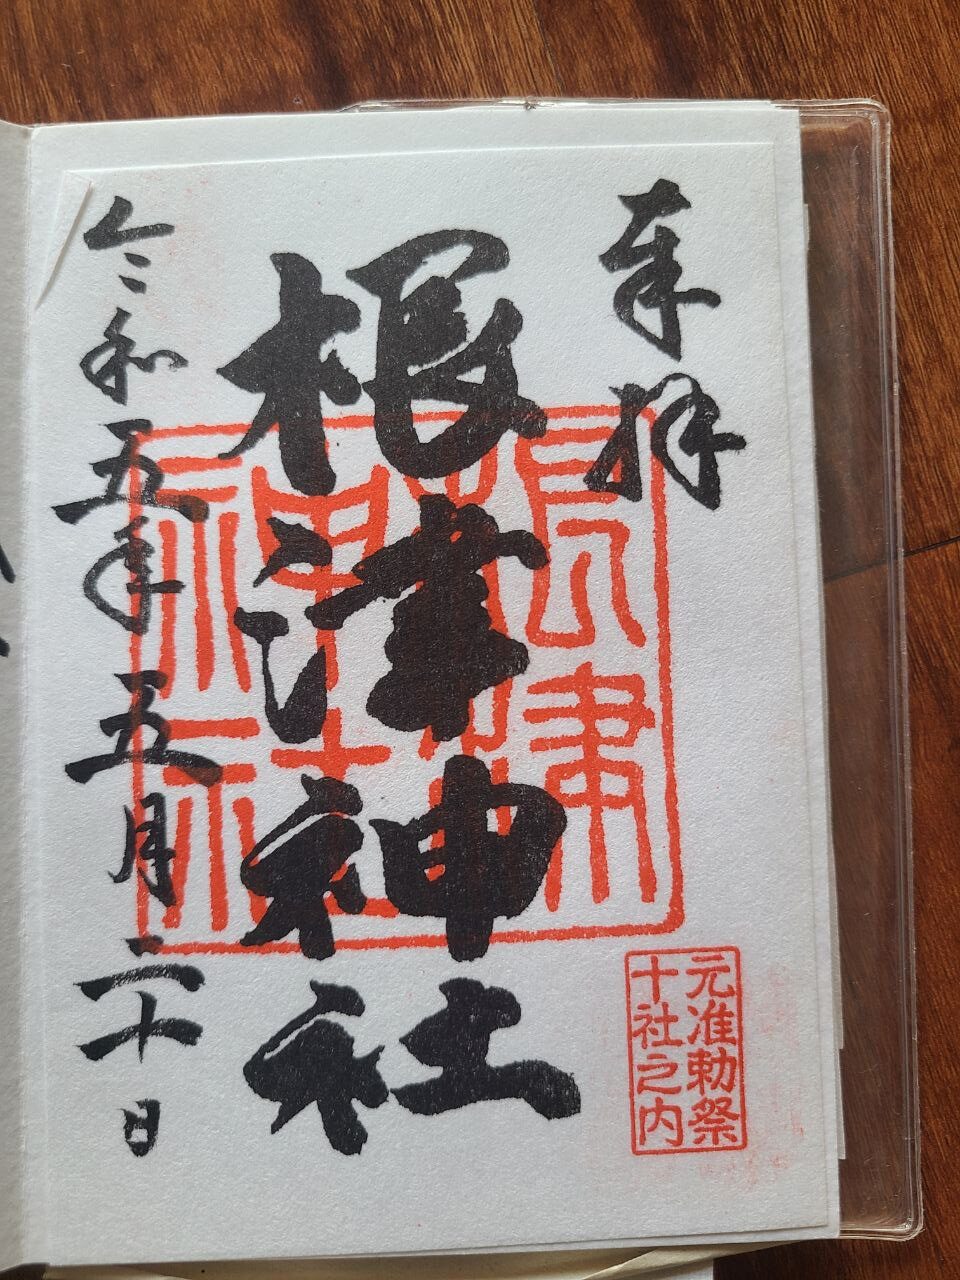 奉拝
根津神社
根津神社
元准勅祭
十社之内
令和五年五月二十日